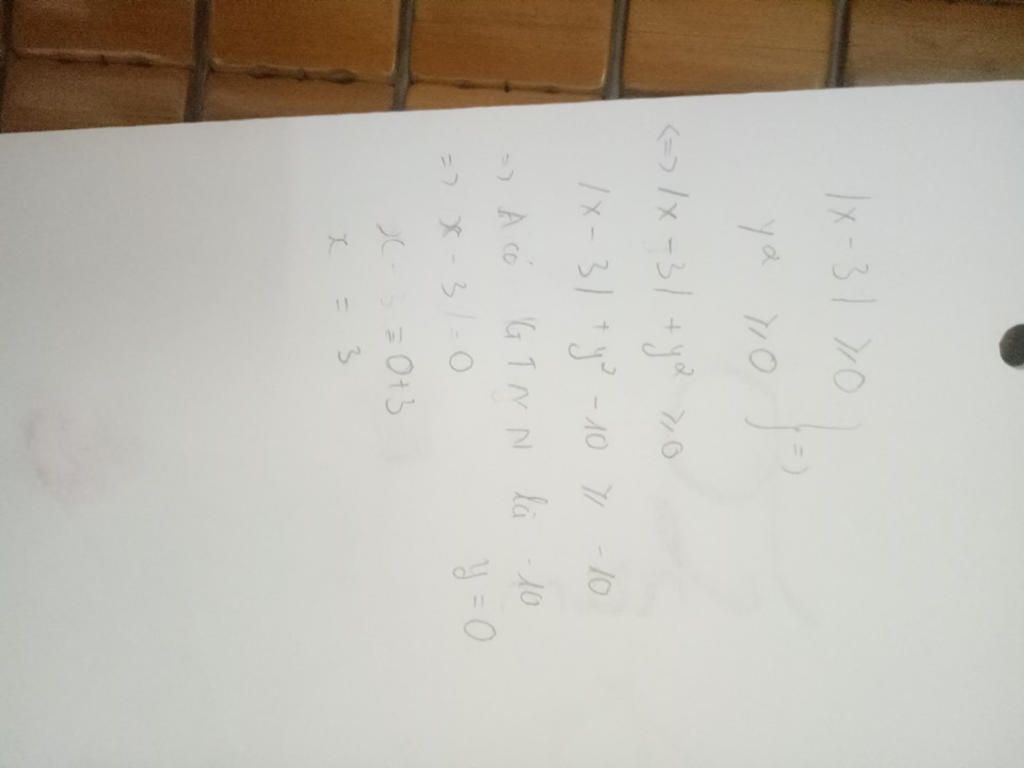 |x - 3| ≥ 0
y² ≥ 0 } =>
<=> |x - 3| + y² ≥ 0
|x - 3| + y² - 10 ≥ -10
=> A có GTNN là -10
=> x - 3| = 0 y = 0
x = 0+3
x = 3